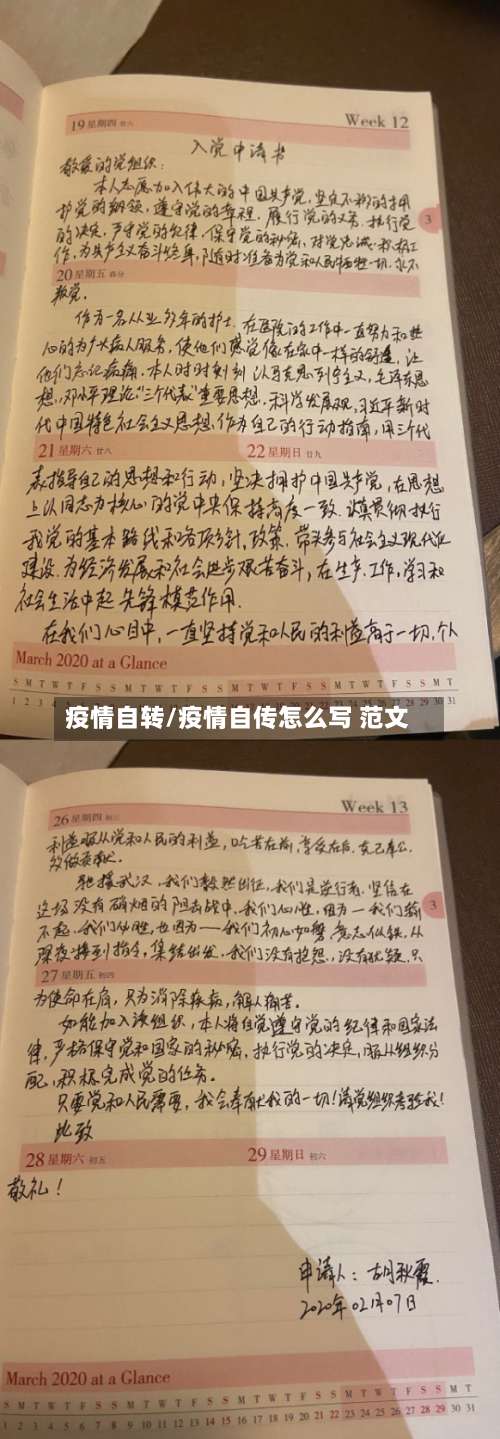 19 星期四 廿六
Week 12
入党申请书
敬爱的党组织:
本人志愿加入伟大的中国共产党,坚定不移的拥
护党的纲领,遵守党的章程,履行党的义务,执行党
的决定,严守党的纪律,保守党的秘密,对党忠诚,积极工
作,为共产主义奋斗终身,随时准备为党和人民牺牲一切,永不
3
20 星期五 春分
叛党。
作为一名从业多年的护士,在医院的工作中一直努力和热
心的为广大病人服务,使他们感觉像在家中一样的舒适,让
他们忘记病痛。本人时时刻刻以马克思列宁主义,毛泽东思
想,邓小平理论,“三个代表”重要思想,科学发展观,习近平新时
代中国特色社会主义思想,作为自己的行动指南,用三个代
21 星期六 廿八
22 星期日 廿九
表指导自己的思想和行动,坚决拥护中国共产党,在思想
上以同志为核心的党中央保持高度一致,认真贯彻执行
我党的基本路线和各项方针,政策,带头参与社会主义现代化
建设,为经济发展和社会进步艰苦奋斗,在生产,工作,学习和
社会生活中起先锋模范作用.
在我们心目中,一直坚持党和人民的利益高于一切,个人
March 2020 at a Glance
S M T W T F S S M T W T F S S M T W T F S S M T W T F S S M T
疫情自转/疫情自传怎么写 范文
26 星期四 初三
Week 13
利益服从党和人民的利益,吃苦在前,享受在后,克己奉公,
多做贡献。
驰援武汉,我们毅然出征,我们是逆行者,坚信在
这场没有硝烟的阻击战中,我们必胜,因为一我们输
不起,我们必胜,也因为一一我们初心如磐,意志似铁,从
深夜接到指令,集结出发,我们没有抱怨,没有犹疑,只
3
27 星期五 初四
为使命在肩,只为消除疾病,解人痛苦。
如能加入该组织,本人将自觉遵守党的纪律和国家法
律,严格保守党和国家的秘密,执行党的决定,服从组织分
配,积极完成党的任务。
只要党和人民需要,我会奉献我的一切!请党组织考验我!
此致
28 星期六 初五
29 星期日 初六
敬礼!
申请人:胡秋霞.
2020年02月07日
March 2020 at a Glance
S M T W T F S S M T W T F S S M T W T F S S M T W T F S S M T
1 2 3 4 5 6 7 8 9 10 11 12 13 14 15 16 17 18 19 20 21 22 23 24 25 26 27 28 29 30 31